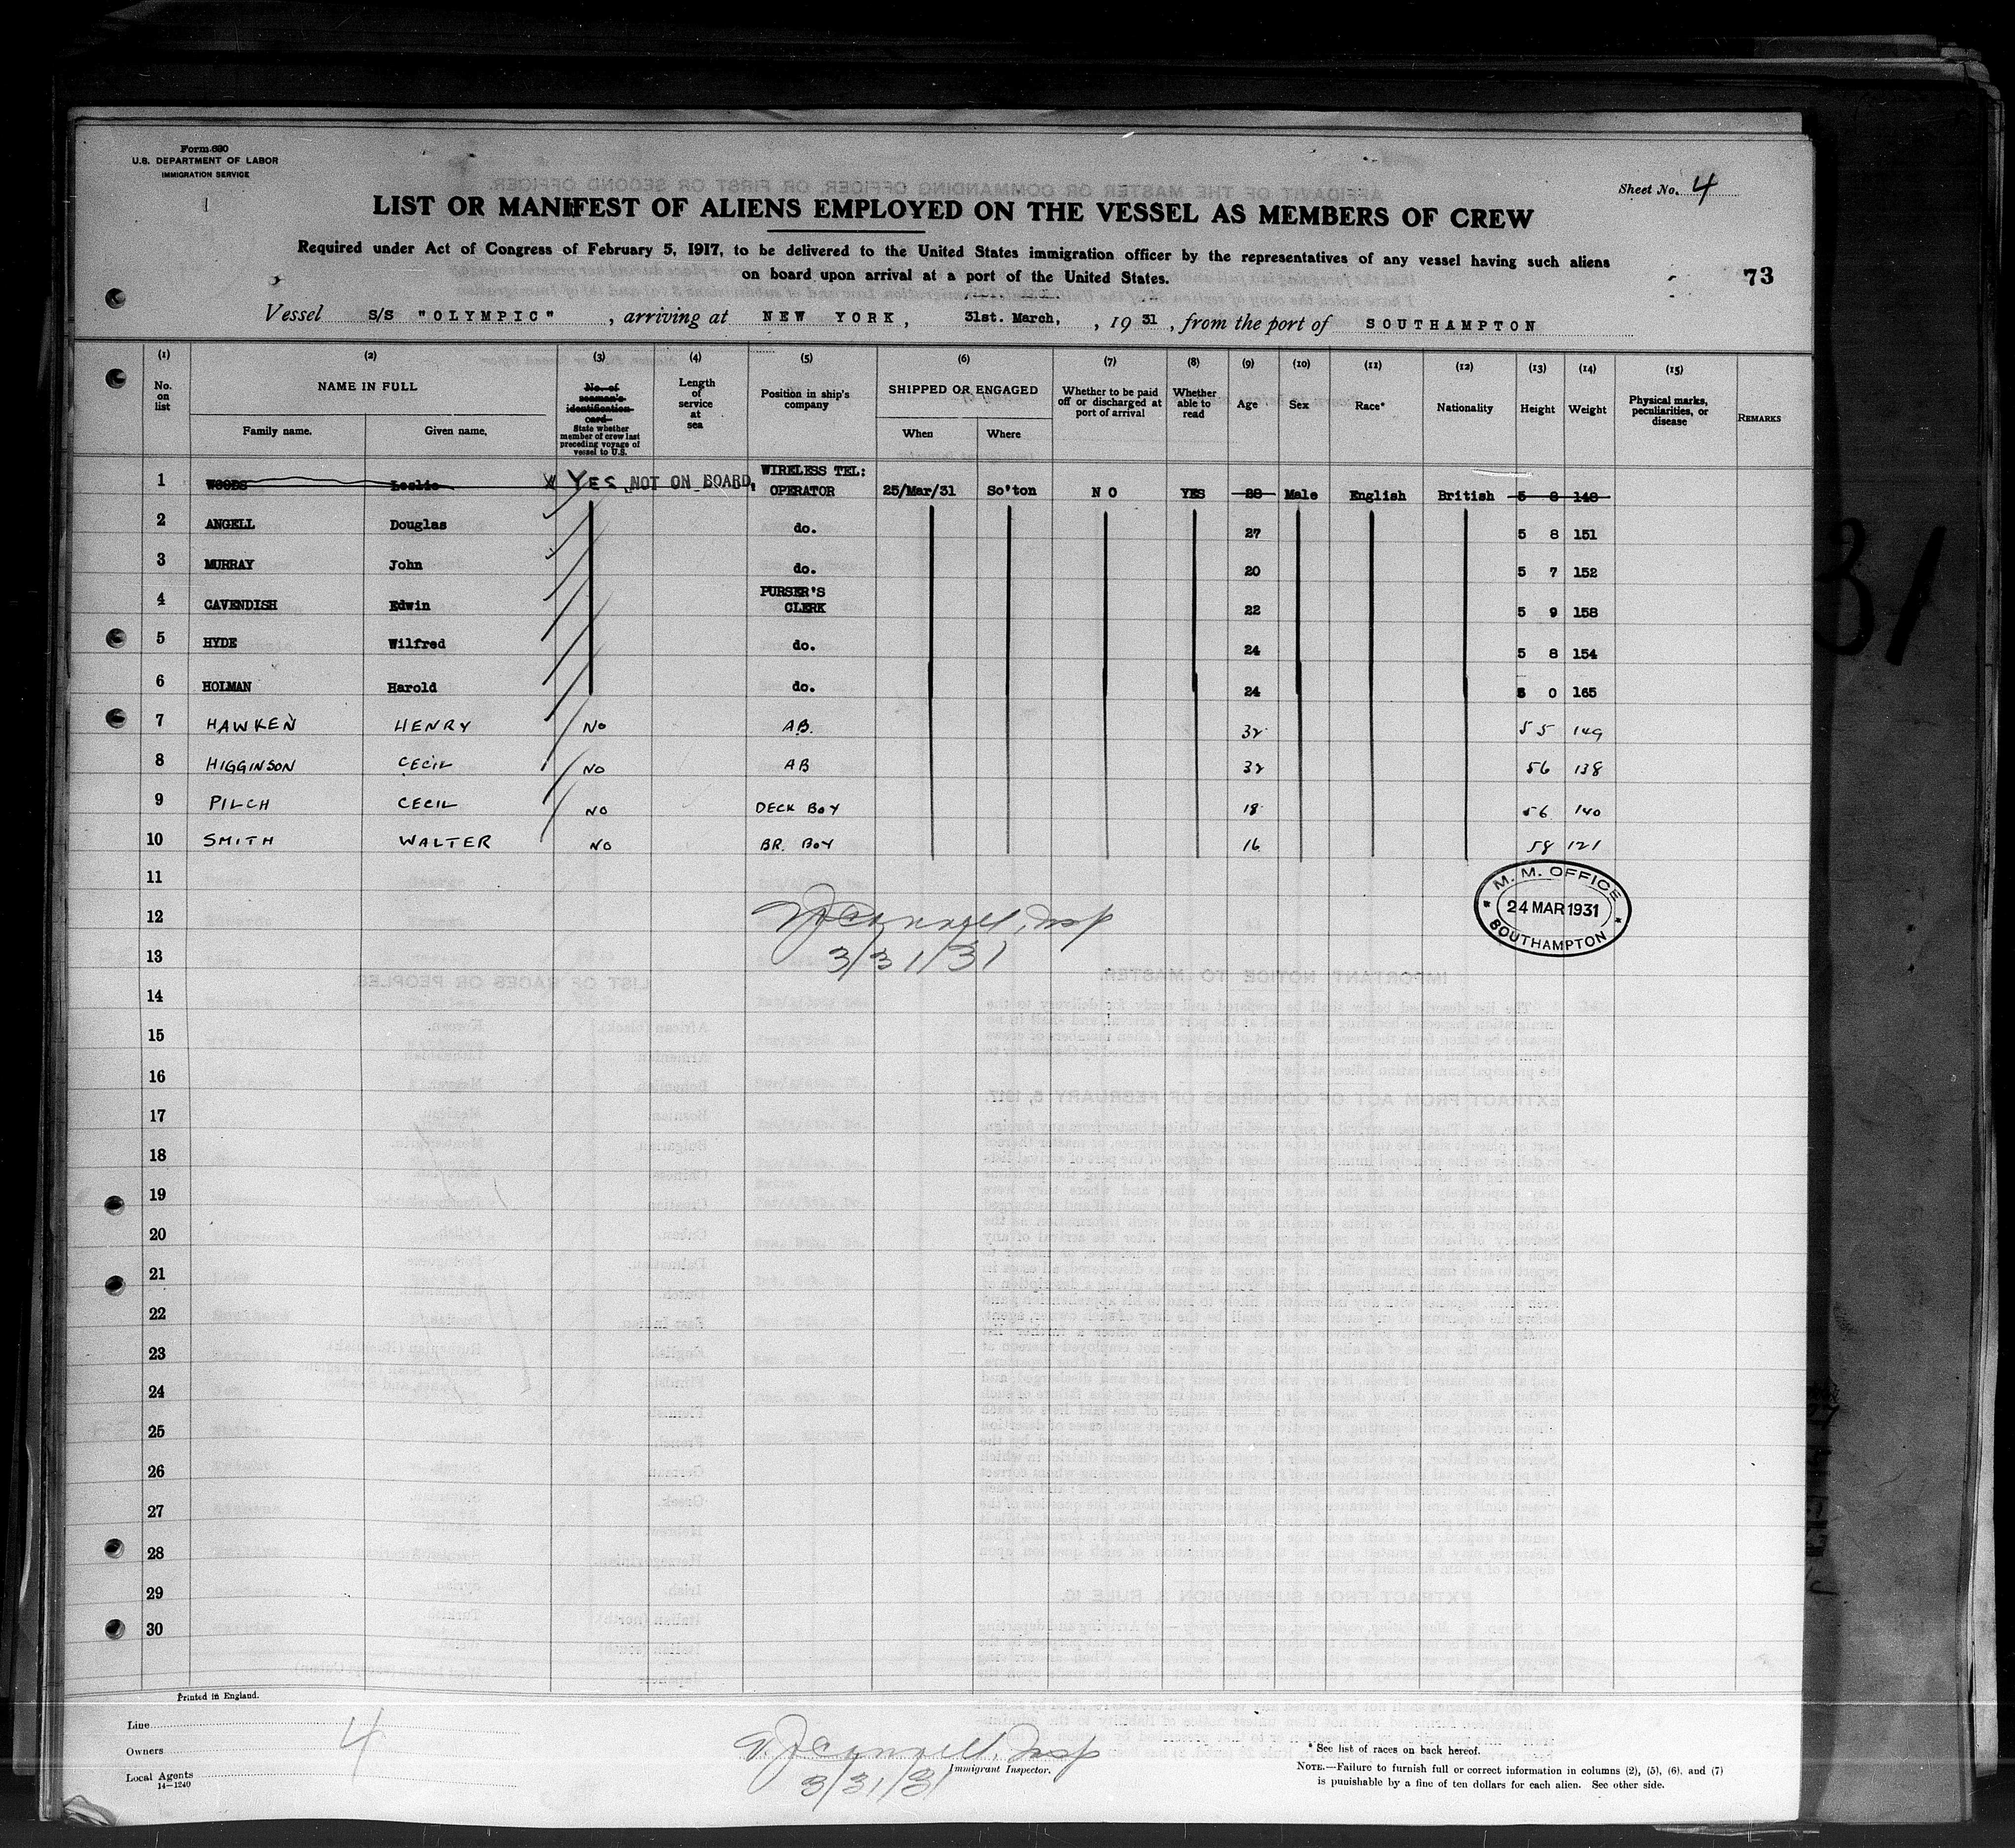 Form 680
U.S. DEPARTMENT OF LABOR
IMMIGRATION SERVICE
Sheet No. 4
LIST OR MANIFEST OF ALIENS EMPLOYED ON THE VESSEL AS MEMBERS OF CREW
Required under Act of Congress of February 5, 1917, to be delivered to the United States immigration officer by the representatives of any vessel having such aliens
on board upon arrival at a port of the United States.
73
Vessel S/S "OLYMPIC", arriving at NEW YORK, 31st. March, , 1931, from the port of SOUTHAMPTON
(1) (2) (3) (4) (5) (6) (7) (8) (9) (10) (11) (12) (13) (14) (15)
No. on list
NAME IN FULL
Family name. Given name.
No. of seaman's identification card
State whether member of crew last preceding voyage of vessel to U.S.
Length of service at sea
Position in ship's company
SHIPPED OR ENGAGED
When Where
Whether to be paid off or discharged at port of arrival
Whether able to read
Age
Sex
Race*
Nationality
Height
Weight
Physical marks, peculiarities, or disease
REMARKS
1 WOODS Leslie X YES NOT ON BOARD, WIRELESS TEL: OPERATOR 25/Mar/31 So'ton NO YES Male English British 5 8 148
2 ANGELL Douglas do. 27 5 8 151
3 MURRAY John do. 20 5 7 152
4 CAVENDISH Edwin PURSER'S CLERK 22 5 9 158
5 HYDE Wilfred do. 24 5 8 154
6 HOLMAN Harold do. 24 6 0 165
7 HAWKEN HENRY NO AB. 32 5 5 149
8 HIGGINSON CECIL NO AB 32 5 6 138
9 PILCH CECIL NO DECK BOY 18 5 6 140
10 SMITH WALTER NO BR. BOY 16 5 8 121
11
M. M. OFFICE
24 MAR 1931
SOUTHAMPTON
12
13
3/31/31
14
15
16
17
18
19
20
21
22
23
24
25
26
27
28
29
30
Printed in England.
Line
Owners
Local Agents
14-1240
4
Immigrant Inspector.
3/31/31
* See list of races on back hereof.
NOTE.—Failure to furnish full or correct information in columns (2), (5), (6), and (7)
is punishable by a fine of ten dollars for each alien. See other side.
31